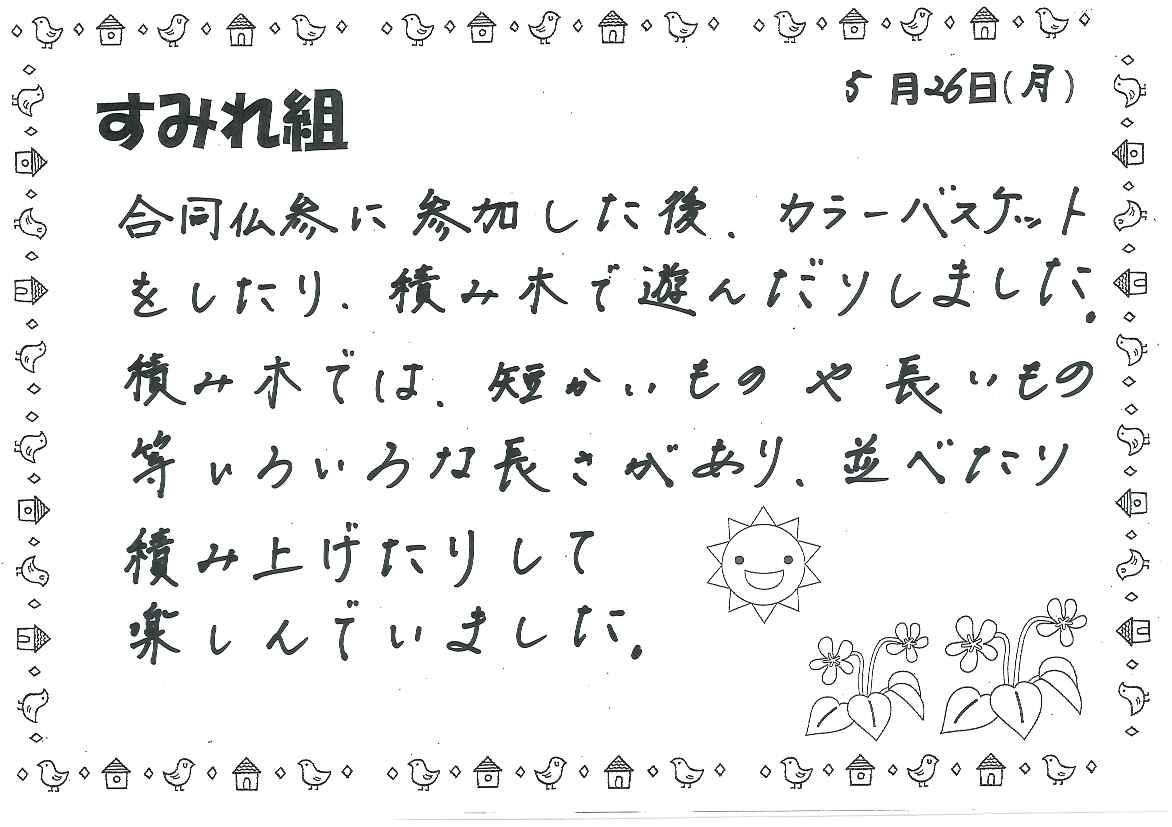 5月26日(月)
すみれ組
合同仏参に参加した後、カラーバスケット
をしたり、積み木で遊んだりしました。
積み木では、短かいものや長いもの
等いろいろな長さがあり、並べたり
積み上げたりして
楽しんでいました。